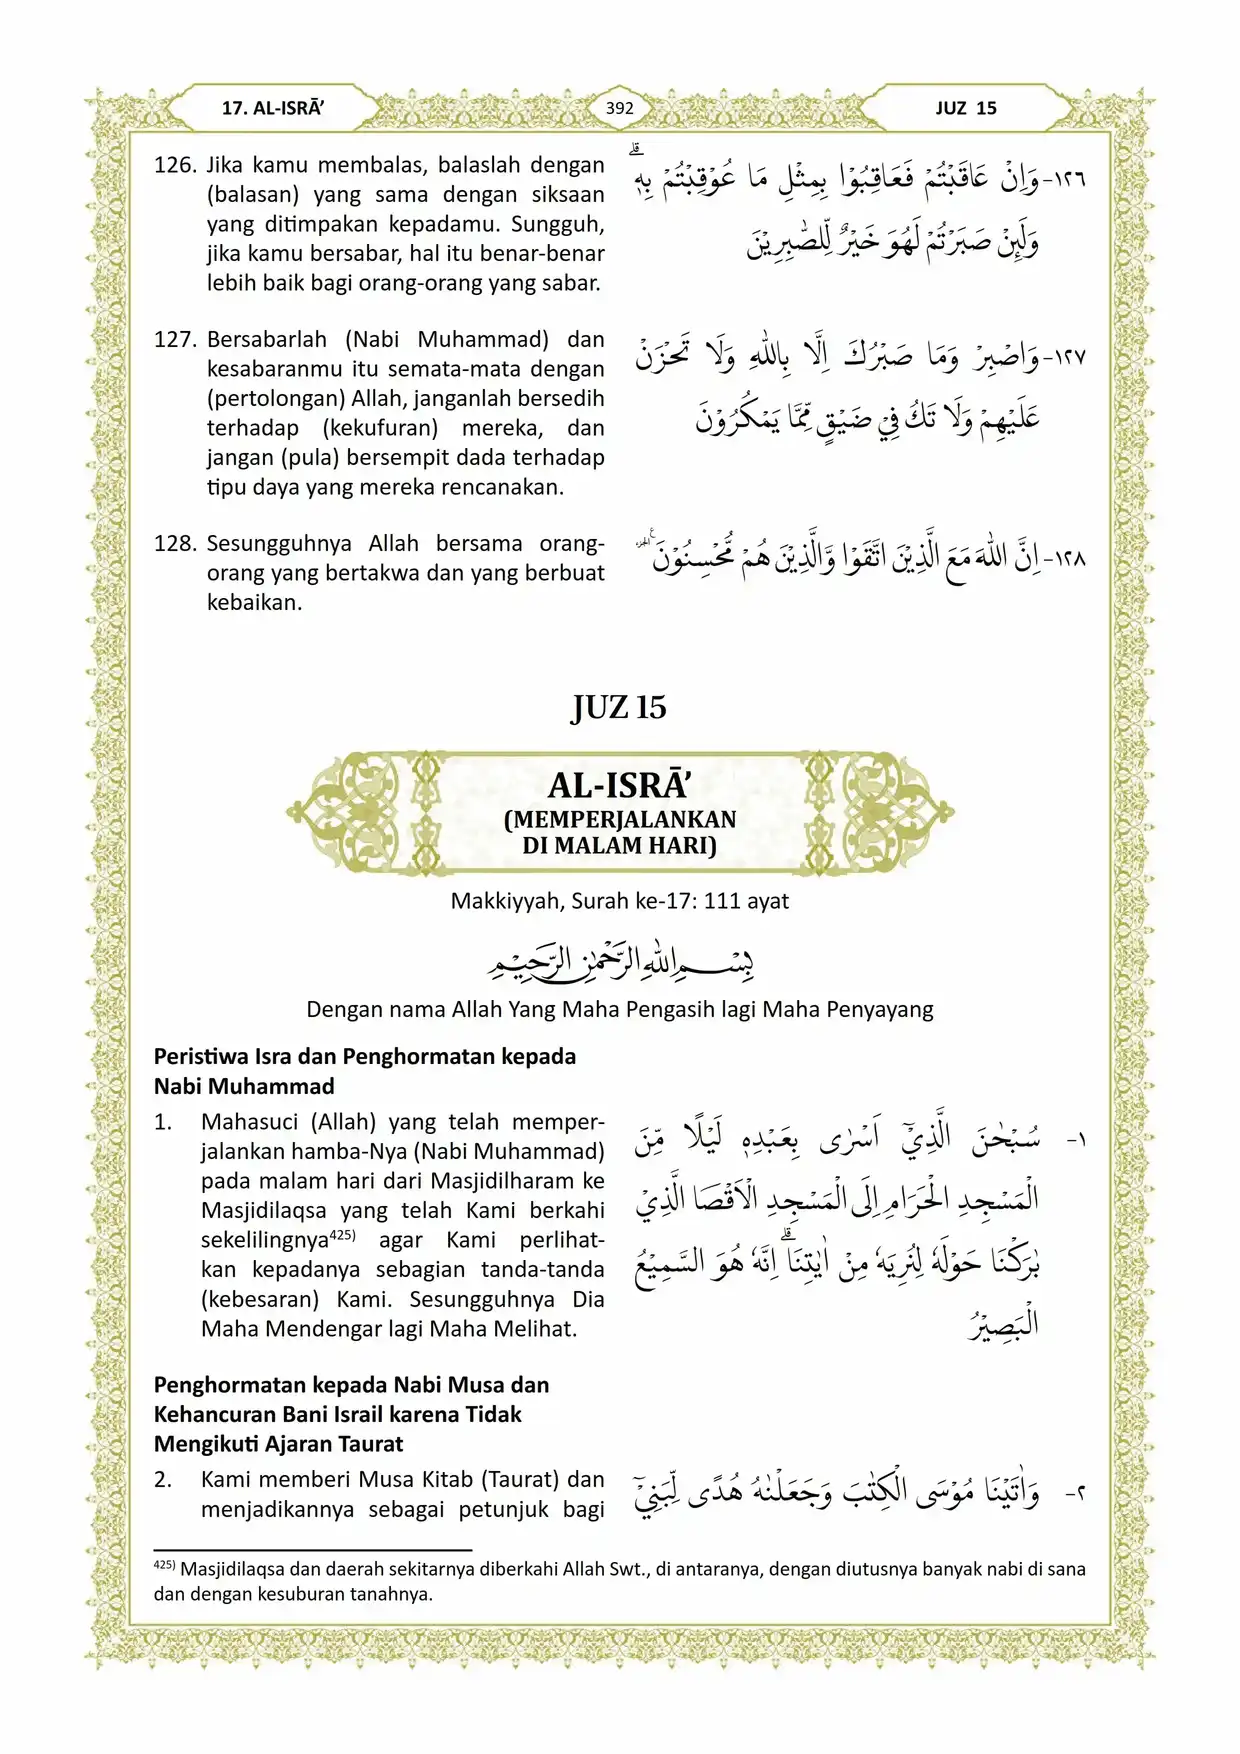 17. AL-ISRĀ’
392
JUZ 15
126. Jika kamu membalas, balaslah dengan
(balasan) yang sama dengan siksaan
yang ditimpakan kepadamu. Sungguh,
jika kamu bersabar, hal itu benar-benar
lebih baik bagi orang-orang yang sabar.
١٢٦- وَاِنْ عَاقَبْتُمْ فَعَاقِبُوْا بِمِثْلِ مَا عُوْقِبْتُمْ بِهٖۗ
وَلَىِٕنْ صَبَرْتُمْ لَهُوَ خَيْرٌ لِّلصّٰبِرِيْنَ
127. Bersabarlah (Nabi Muhammad) dan
kesabaranmu itu semata-mata dengan
(pertolongan) Allah, janganlah bersedih
terhadap (kekufuran) mereka, dan
jangan (pula) bersempit dada terhadap
tipu daya yang mereka rencanakan.
١٢٧- وَاصْبِرْ وَمَا صَبْرُكَ اِلَّا بِاللّٰهِ وَلَا تَحْزَنْ
عَلَيْهِمْ وَلَا تَكُ فِيْ ضَيْقٍ مِّمَّا يَمْكُرُوْنَ
128. Sesungguhnya Allah bersama orang-
orang yang bertakwa dan yang berbuat
kebaikan.
١٢٨- اِنَّ اللّٰهَ مَعَ الَّذِيْنَ اتَّقَوْا وَّالَّذِيْنَ هُمْ مُّحْسِنُوْنَ
JUZ 15
AL-ISRĀ’
(MEMPERJALANKAN
DI MALAM HARI)
Makkiyyah, Surah ke-17: 111 ayat
بِسْمِ اللّٰهِ الرَّحْمٰنِ الرَّحِيْمِ
Dengan nama Allah Yang Maha Pengasih lagi Maha Penyayang
Peristiwa Isra dan Penghormatan kepada
Nabi Muhammad
1. Mahasuci (Allah) yang telah memper-
jalankan hamba-Nya (Nabi Muhammad)
pada malam hari dari Masjidilharam ke
Masjidilaqsa yang telah Kami berkahi
sekelilingnya425) agar Kami perlihat-
kan kepadanya sebagian tanda-tanda
(kebesaran) Kami. Sesungguhnya Dia
Maha Mendengar lagi Maha Melihat.
١- سُبْحٰنَ الَّذِيْٓ اَسْرٰى بِعَبْدِهٖ لَيْلًا مِّنَ
الْمَسْجِدِ الْحَرَامِ اِلَى الْمَسْجِدِ الْاَقْصَا الَّذِيْ
بٰرَكْنَا حَوْلَهٗ لِنُرِيَهٗ مِنْ اٰيٰتِنَاۗ اِنَّهٗ هُوَ السَّمِيْعُ
الْبَصِيْرُ
Penghormatan kepada Nabi Musa dan
Kehancuran Bani Israil karena Tidak
Mengikuti Ajaran Taurat
2. Kami memberi Musa Kitab (Taurat) dan
menjadikannya sebagai petunjuk bagi
٢- وَاٰتَيْنَا مُوْسَى الْكِتٰبَ وَجَعَلْنٰهُ هُدًى لِّبَنِيْٓ
425) Masjidilaqsa dan daerah sekitarnya diberkahi Allah Swt., di antaranya, dengan diutusnya banyak nabi di sana
dan dengan kesuburan tanahnya.